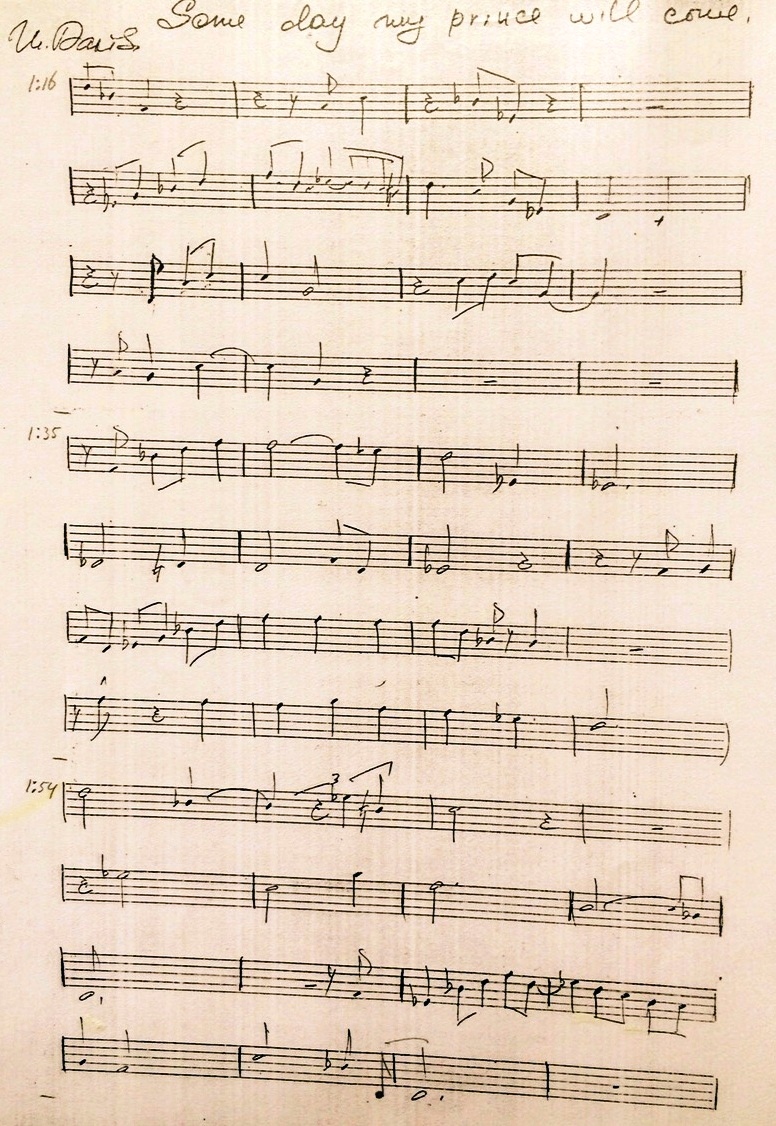 Some day my prince will come.
M. Davis.
1:16
1:35
1:54
3